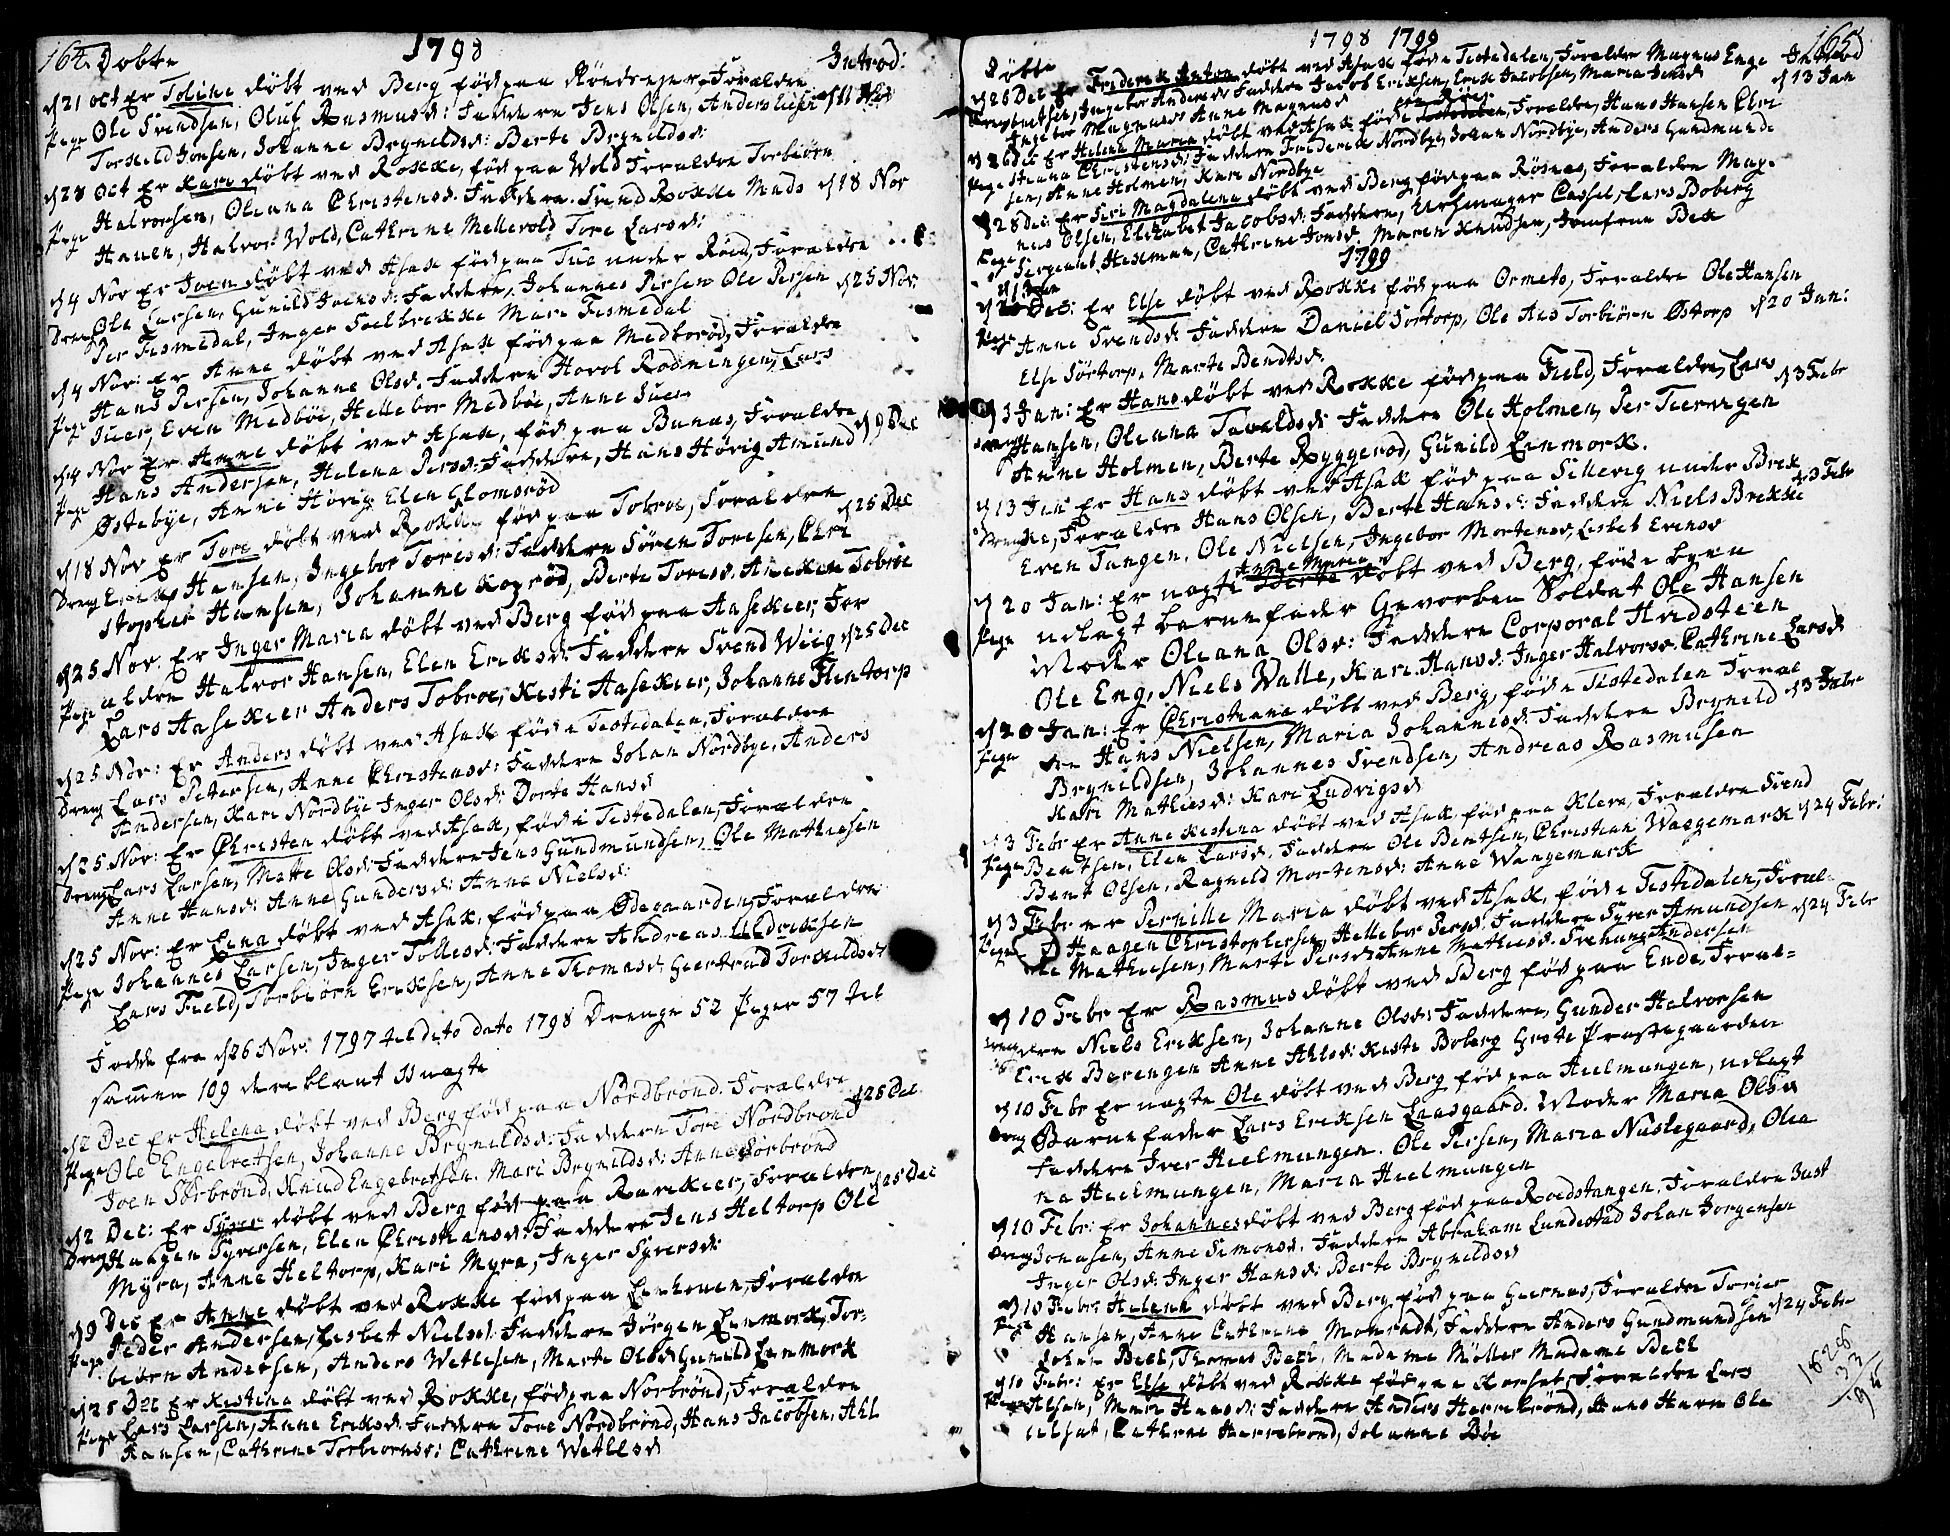 164. Døbte 1798 Introd:
d 21 Oct Er Toline døbt ved Berg fød paa Røndsenger, Forældre
Pige Ole Svendsen, Oluf Rasmusd: Faddere Jens Olsen, Anders
Torkild Jonsen, Johanne Brynildsd: Berte Brynildsd:
d 28 Oct Er Kari døbt ved Rokke, fød paa Wold Forældre Torbiørn
Pige Halvorsen, Oleana Christensd: Faddere Svend Rokke Mads d 18 Nov
Hauen, Halvor Wold, Cathrine Mellevold Tore Larsd:
d 4 Nov Er Joen døbt ved Asak fød paa Tue under Røed, Forældre
Dreng Ole Larsen, Gunild Joensd: Faddere, Johannes Persen Ole Persen d 25 Nov.
Per Fismedal, Inger Soelbrekke Mari Fismedal
d 4 Nov: Er Anne døbt ved Asak fød paa Medborød, Forældre
Pige Hans Persen, Johanne Olsd. Faddere Hovol Rødningen, Lars
Iuer, Even Medbøe, Hellebor Medbøe, Anne Iuer
d 4 Nov Er Anne døbt ved Asak, fød paa Bunæs, Forældre
Pige Hans Andersen, Helena Persd: Faddere, Hans Høvig Amund d 9 Dec
Østebye, Anni Høvig Elen Glomsrød
d 18 Nov Er Tore døbt ved Rokke fød paa Tobroe, Forældre d 25 Dec
Dreng Erik Hansen, Ingebor Toresd: Faddere Søren Toresen, Chri
stopher Hansen, Johanne Koprød, Berte Toresd. Aneken Tobroe
d 25 Nov. Er Inger Maria døbt ved Berg fød paa Aasekier, For
Pige ældre Halvor Hansen, Elen Eriksd: Faddere Svend Wiig d 25 Dec
Lars Aasekier Anders Tobroe, Kisti Aasekier, Johanne Flintorp
d 25 Nov: Er Anders døbt ved Asak fød i Tistedalen, Forældre
Dreng Lars Petersen, Anne Christensd: Faddere Johan Nordbye, Anders
Andersen, Kari Nordbye Inger Olsd: Dorte Hansd
d 25 Nov: Er Christen døbt ved Asak, fød i Tistedalen, Forældre
Dreng Lars Larsen, Mette Olsd: Faddere Jens Gundmundsen, Ole Mathiesen
Anne Hansd: Anne Gundersd: Anne Nielsd:
d 25 Nov: Er Lena døbt ved Asak, fød paa Ødegaarden, Forældre
Pige Johannes Larsen, Inger Tollesd: Faddere Andreas Uldriksen
Lars Field, Torbiørn Eriksen, Anne Thomasd: Geertrud Torkildsd:
Fødde fra d 26 Nov: 1797 til dito dato 1798 Drenge 52 Piger 57 til
sammen 109 deriblant 11 uægte
d 2 Dec Er Helena døbt ved Berg fød paa Nordbrønd. Forældre
Pige Ole Engebretsen, Johanne Brynildsd: Faddere Tore Nordbrønd d 25 Dec
Joen Sørbrønd, Knud Engebretsen. Mari Brynildsd: Anne Sørbrønd
d 2 Dec: Er Syver døbt ved Berg fød paa Rarekier, Forældre
Dreng Haagen Syversen, Elen Christiansd: Faddere Jens Heltorp Ole d 25 Dec
Myra, Anne Heltorp, Kari Myra, Inger Syversd:
d 9 Dec Er Anne døbt ved Rokke fød paa Lenhouen, Forældre
Pige Peder Andersen, Lisbet Nielsd: Faddere Jørgen Linmork, Tor-
biørn Andersen, Anders Wetlesen, Marte Olsd Gunild Linmork
d 28 Dec Er Kistina døbt ved Rokke, fød paa Norbrønd, Forældre
Pige Lars Larsen, Anne Eriksd: Faddere Tore Nordbrønd, Hans Jacobsen, Ahl
Hansen, Cathrine Torbiørnsd: Cathrine Wetlesd
1798 1799 165
Døbte Introd
d 26 Dec Er Friderik Anton døbt ved Asak fød i Tistedalen, Forældre Magnus Enge
Dreng bretsen, Ingebor Andersd: Faddere Jacob Eriksen, Erik Jacobsen, Maria Jensd d 13 Jan
Ingebor Magnusd Anne Magnusd
d 26 Dec Er Helena Maria døbt ved Asak fød i Tistedalen, Forældre, Hans Hansen Chri
Pige stiana Christensd: Faddere Friderik Nordbye, Johan Nordbye, Anders Gundmunds
sen, Anne Holmen, Kari Nordbye
d 28 Dec: Er Siri Magdalena døbt ved Berg fød paa Røsnæs, Forældre Mag-
Pige nus Olsen, Elizabet Jacobsd: Faddere, Urhmager Cassel, Lars Boberg
Sergeant Hekman, Cathrine Jonsd Maren Knudsen, Jomfrue Bek
1799
d 1 Jan Er Else døbt ved Rokke fød paa Ormets, Forældre Ole Hansen
Pige Anne Svendsd: Faddere Daniel Sørtorp, Ole Aas Torbiørn Østorp d 20 Jan:
Else Sørtorp, Marte Bendtsd:
d 3 Jan: Er Hans døbt ved Rokke fød paa Field, Forældre, Lars d 3 Febr
Dreng Hansen, Oleana Tavaldsd: Faddere Ole Holmen, Per Tiervigen
Anne Holmen, Berte Ryggerød, Gunild Linmork.
d 13 Jan Er Hans døbt ved Asak fød paa Sillevig under Brek
Dreng ke, Forældre Hans Olsen, Berte Hansd: Faddere Niels Brekke d 3 Febr
Even Tangen, Ole Nielsen, Ingebor Mortensd, Lisbet Evensd
Anne Maria
d 20 Jan: Er uægte Berte døbt ved Berg, fød i byen
Pige udlagt barnefader Gevorben Soldat Ole Hansen
Moder Oleana Olsd: Faddere Corporal Hvidsteen
Ole Eng, Niels Walle, Kari Hansd: Inger Halvorsd: Cathrine Larsd
d 20 Jan: Er Christiana døbt ved Berg, fød i Tistedalen Foræl
Pige dre Hans Nielsen, Maria Johannesd: Faddere Brynild d 3 Febr
Brynildsen, Johannes Svendsen, Andreas Rasmusen
Kari Mathiesd: Kari Ludvigsd
d 3 Febr Er Anne Kistina døbt ved Asak, fød paa Kleve, Forældre Svend
Pige Bentsen, Elen Larsd. Faddere Ole Bentsen, Christian Wasgemark d 24 Febr:
Bent Olsen, Ragnild Mortensd: Anne Wangemark
d 3 Febr er Pernille Maria døbt ved Asak, fød i Tistedalen, Foræl-
Pige d Haagen Christophersen, Hellebor Persd: Faddere Syver Amundsen d 24 Febr
Ole Mathiesen, Marte Persd: Anne Mathiesd: Andersen
d 10 Febr Er Rasmus døbt ved Berg fød paa Ende, Foræl-
Dreng dre Niels Eriksen, Johanne Olsd: Faddere, Gunder Halvorsen
Erik Berengen Anne Ahlsd: Kiste Boberg Grete Præstegaarden
d 10 Febr Er uægte Ole døbt ved Berg fød paa Hielmungen, udlagt
Dreng Barnefader Lars Eriksen Laasgaard. Moder Maria Olsd
Faddere Iver Hielmungen. Ole Persen, Maria Nustegaard, Olea
na Hielmungen, Maria Hielmungen
d 10 Febr: Er Johannes døbt ved Berg fød paa Roedstangen. Forældre Just
Dreng Jonasen, Anne Simonsd. Faddere Abraham Lundestad Johan Jørgensen
Inger Olsd: Inger Hansd: Berte Brynildsd
d 10 Febr: Helene døbt ved Berg fød paa Giernæs, Forældre Torier
Pige Hansen, Anne Cathrine Monradt, Faddere Anders Gundmundsen d 24 Febr
Johan Bech, Thomas Bech, Madame Møller Madame Bech
d 10 Febr: Er Else døbt ved Rokke fød paa Korset, Forældre Lars
Pige Olsen, Mari Hansd: Faddere Anders Harrebrønd, Hans Ole
Cathrine Harrebrønd, Johanne Bøe
1828
33
95